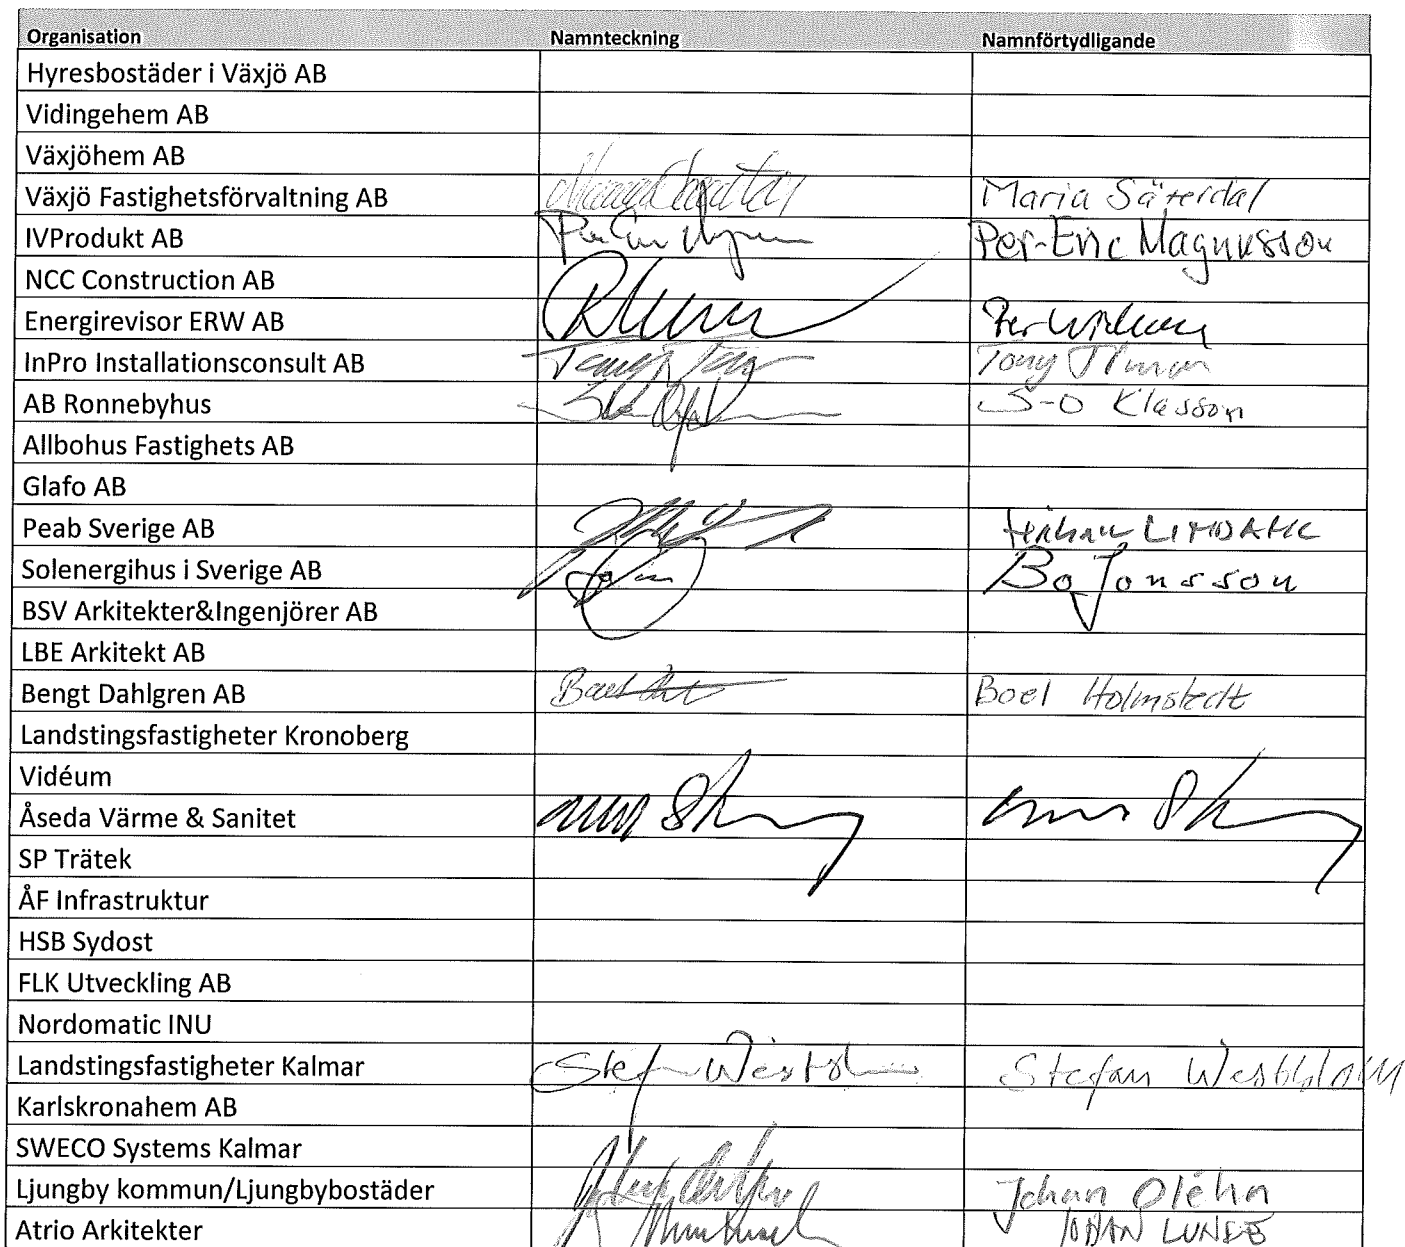 Organisation Namnteckning Namnförtydligande
Hyresbostäder i Växjö AB
Vidingehem AB
Växjöhem AB
Växjö Fastighetsförvaltning AB Maria Säterdal
IVProdukt AB Per-Eric Magnusson
NCC Construction AB
Energirevisor ERW AB Per
InPro Installationsconsult AB Tony
AB Ronnebyhus S-O Klasson
Allbohus Fastighets AB
Glafo AB
Peab Sverige AB
Solenergihus i Sverige AB Bo Jonsson
BSV Arkitekter&Ingenjörer AB
LBE Arkitekt AB
Bengt Dahlgren AB Boel Holmstedt
Landstingsfastigheter Kronoberg
Vidéum
Åseda Värme & Sanitet
SP Trätek
ÅF Infrastruktur
HSB Sydost
FLK Utveckling AB
Nordomatic INU
Landstingsfastigheter Kalmar Stefan
Karlskronahem AB
SWECO Systems Kalmar
Ljungby kommun/Ljungbybostäder Johan Oléhn
Atrio Arkitekter JOHAN